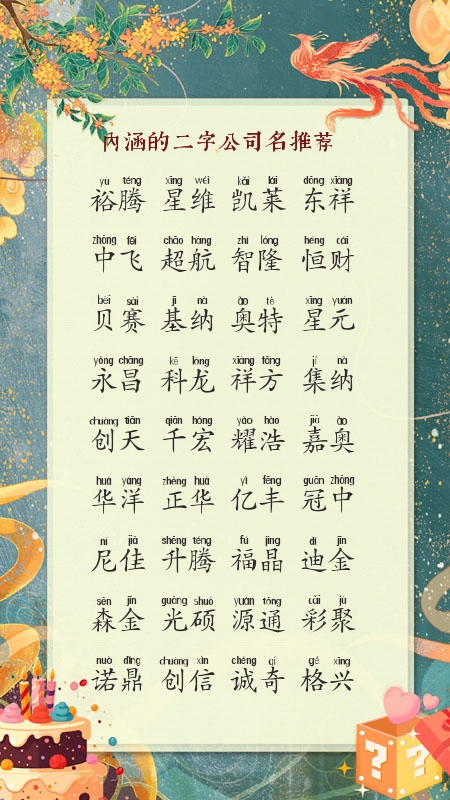 內涵的二字公司名推荐
yù téng xīng wéi kǎi lái dōng xiáng
裕腾 星维 凯莱 东祥
zhōng fēi chāo háng zhì lóng héng cái
中飞 超航 智隆 恒财
bèi sài jī nà ào tè xīng yuán
贝赛 基纳 奥特 星元
yǒng chāng kē lóng xiáng fāng jí nà
永昌 科龙 祥方 集纳
chuàng tiān qiān hóng yào hào jiā ào
创天 千宏 耀浩 嘉奥
huá yáng zhèng huá yì fēng guān zhōng
华洋 正华 亿丰 冠中
ní jiā shēng téng fú jīng dí jīn
尼佳 升腾 福晶 迪金
sēn jīn guāng shuò yuán tōng cǎi jù
森金 光硕 源通 彩聚
nuò dǐng chuàng xìn chéng qí gé xīng
诺鼎 创信 诚奇 格兴